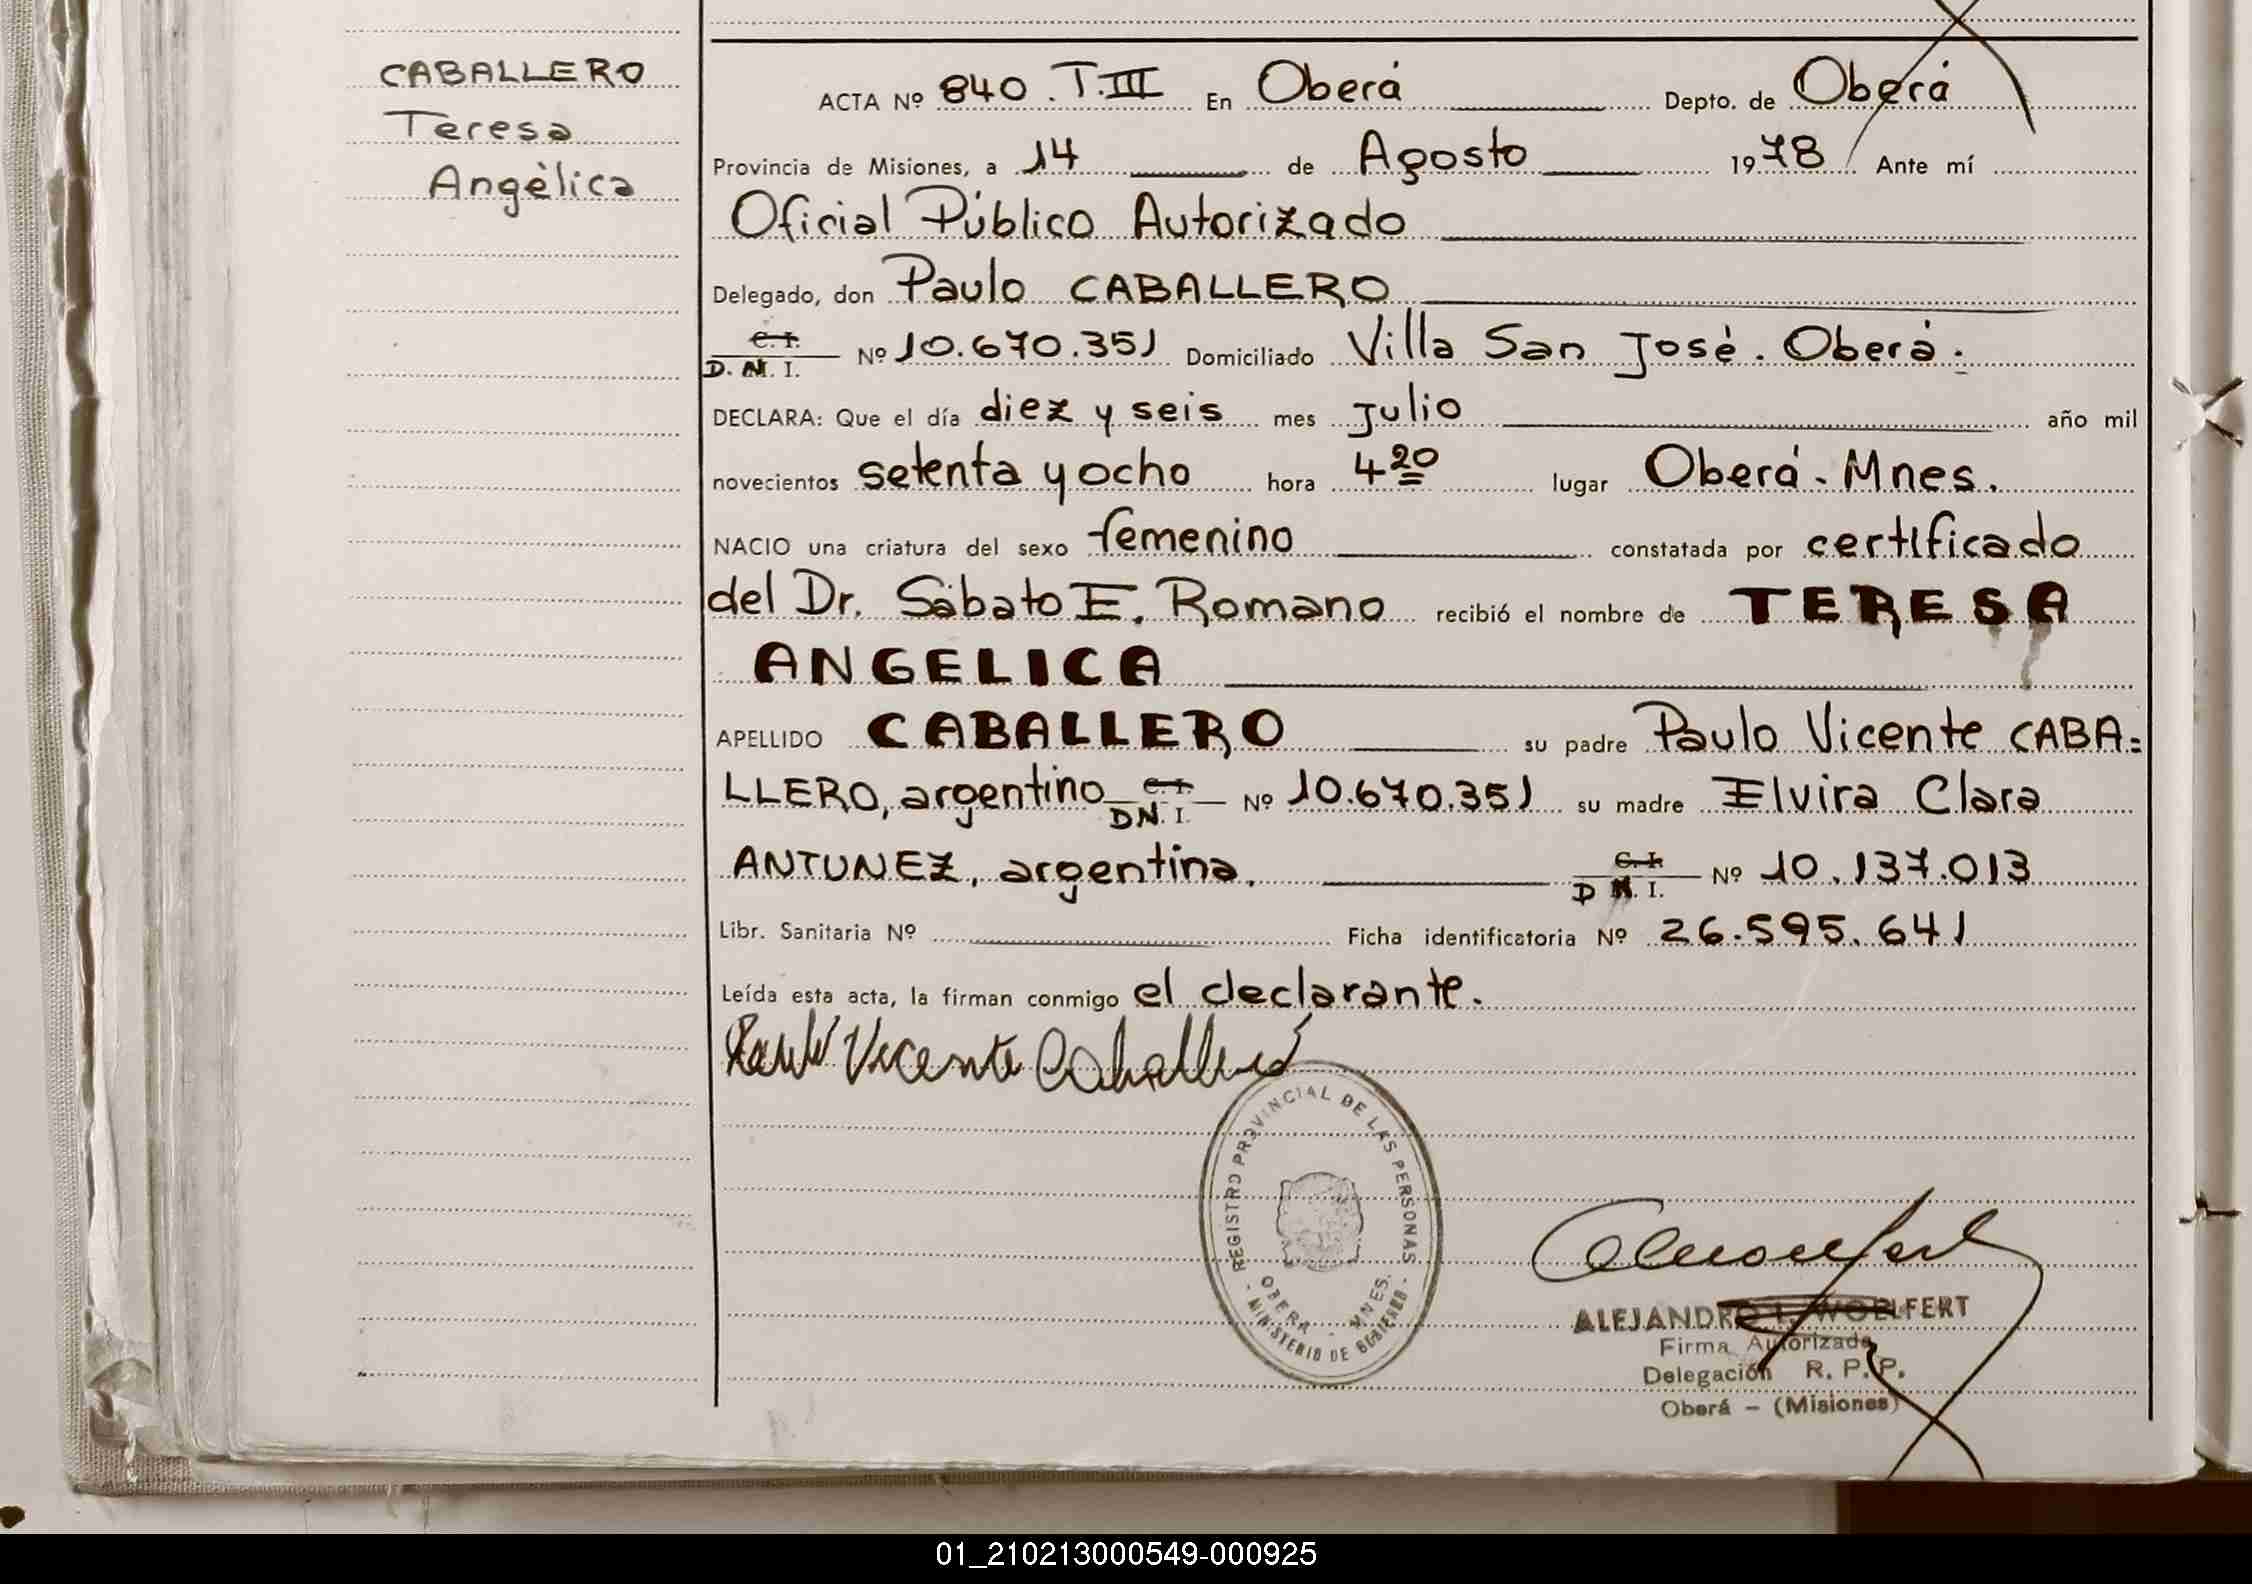 CABALLERO
Teresa
Angèlica
ACTA Nº 840.T.III En Oberá Depto. de Oberá
Provincia de Misiones, a 14 de Agosto 1978 Ante mí
Oficial Público Autorizado
Delegado, don Paulo CABALLERO
C. I.
D. N. I. Nº 10.670.351 Domiciliado Villa San José. Oberá.
DECLARA: Que el día diez y seis mes Julio año mil
novecientos setenta y ocho hora 4 20 lugar Oberá. Mnes.
NACIO una criatura del sexo femenino constatada por certificado
del Dr. Sábato E. Romano recibió el nombre de TERESA
ANGELICA
APELLIDO CABALLERO su padre Paulo Vicente CABA=
LLERO, argentino C. I. DN. I. Nº 10.670.351 su madre Elvira Clara
ANTUNEZ, argentina. C. I. D N. I. Nº 10.137.013
Libr. Sanitaria Nº Ficha identificatoria Nº 26.595.641
Leída esta acta, la firman conmigo el declarante.
Vicente Caballero
REGISTRO PROVINCIAL DE LAS PERSONAS
OBERA - MNES.
- MINISTERIO DE GOBIERNO -
ALEJANDRO I. WOELFERT
Firma Autorizada
Delegación R. P. P.
Oberá - (Misiones)
01_210213000549-000925